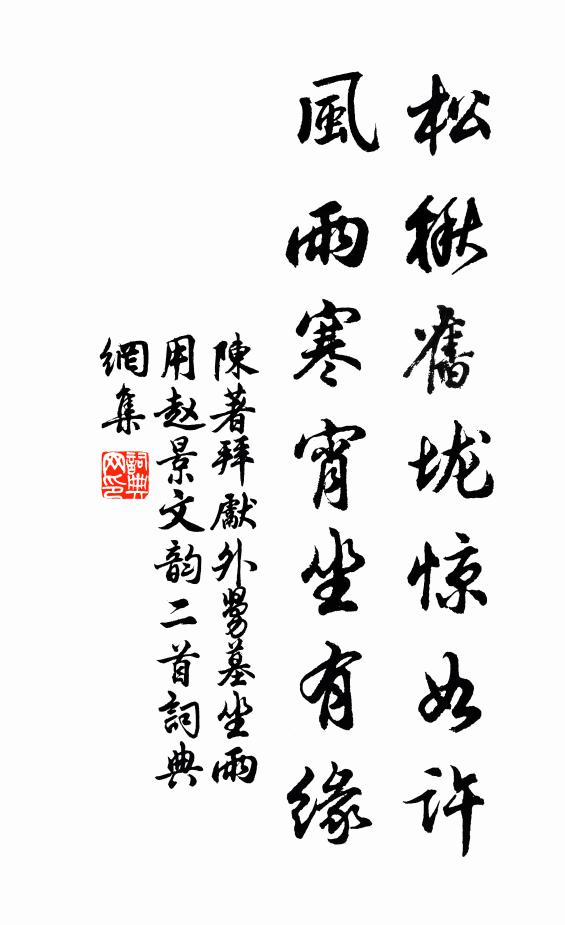 松楸舊垅惊如许
風雨寒宵坐有緣
陳著拜獻外舅墓坐雨
用赵景文韵二首詞典
網集
詞典网印